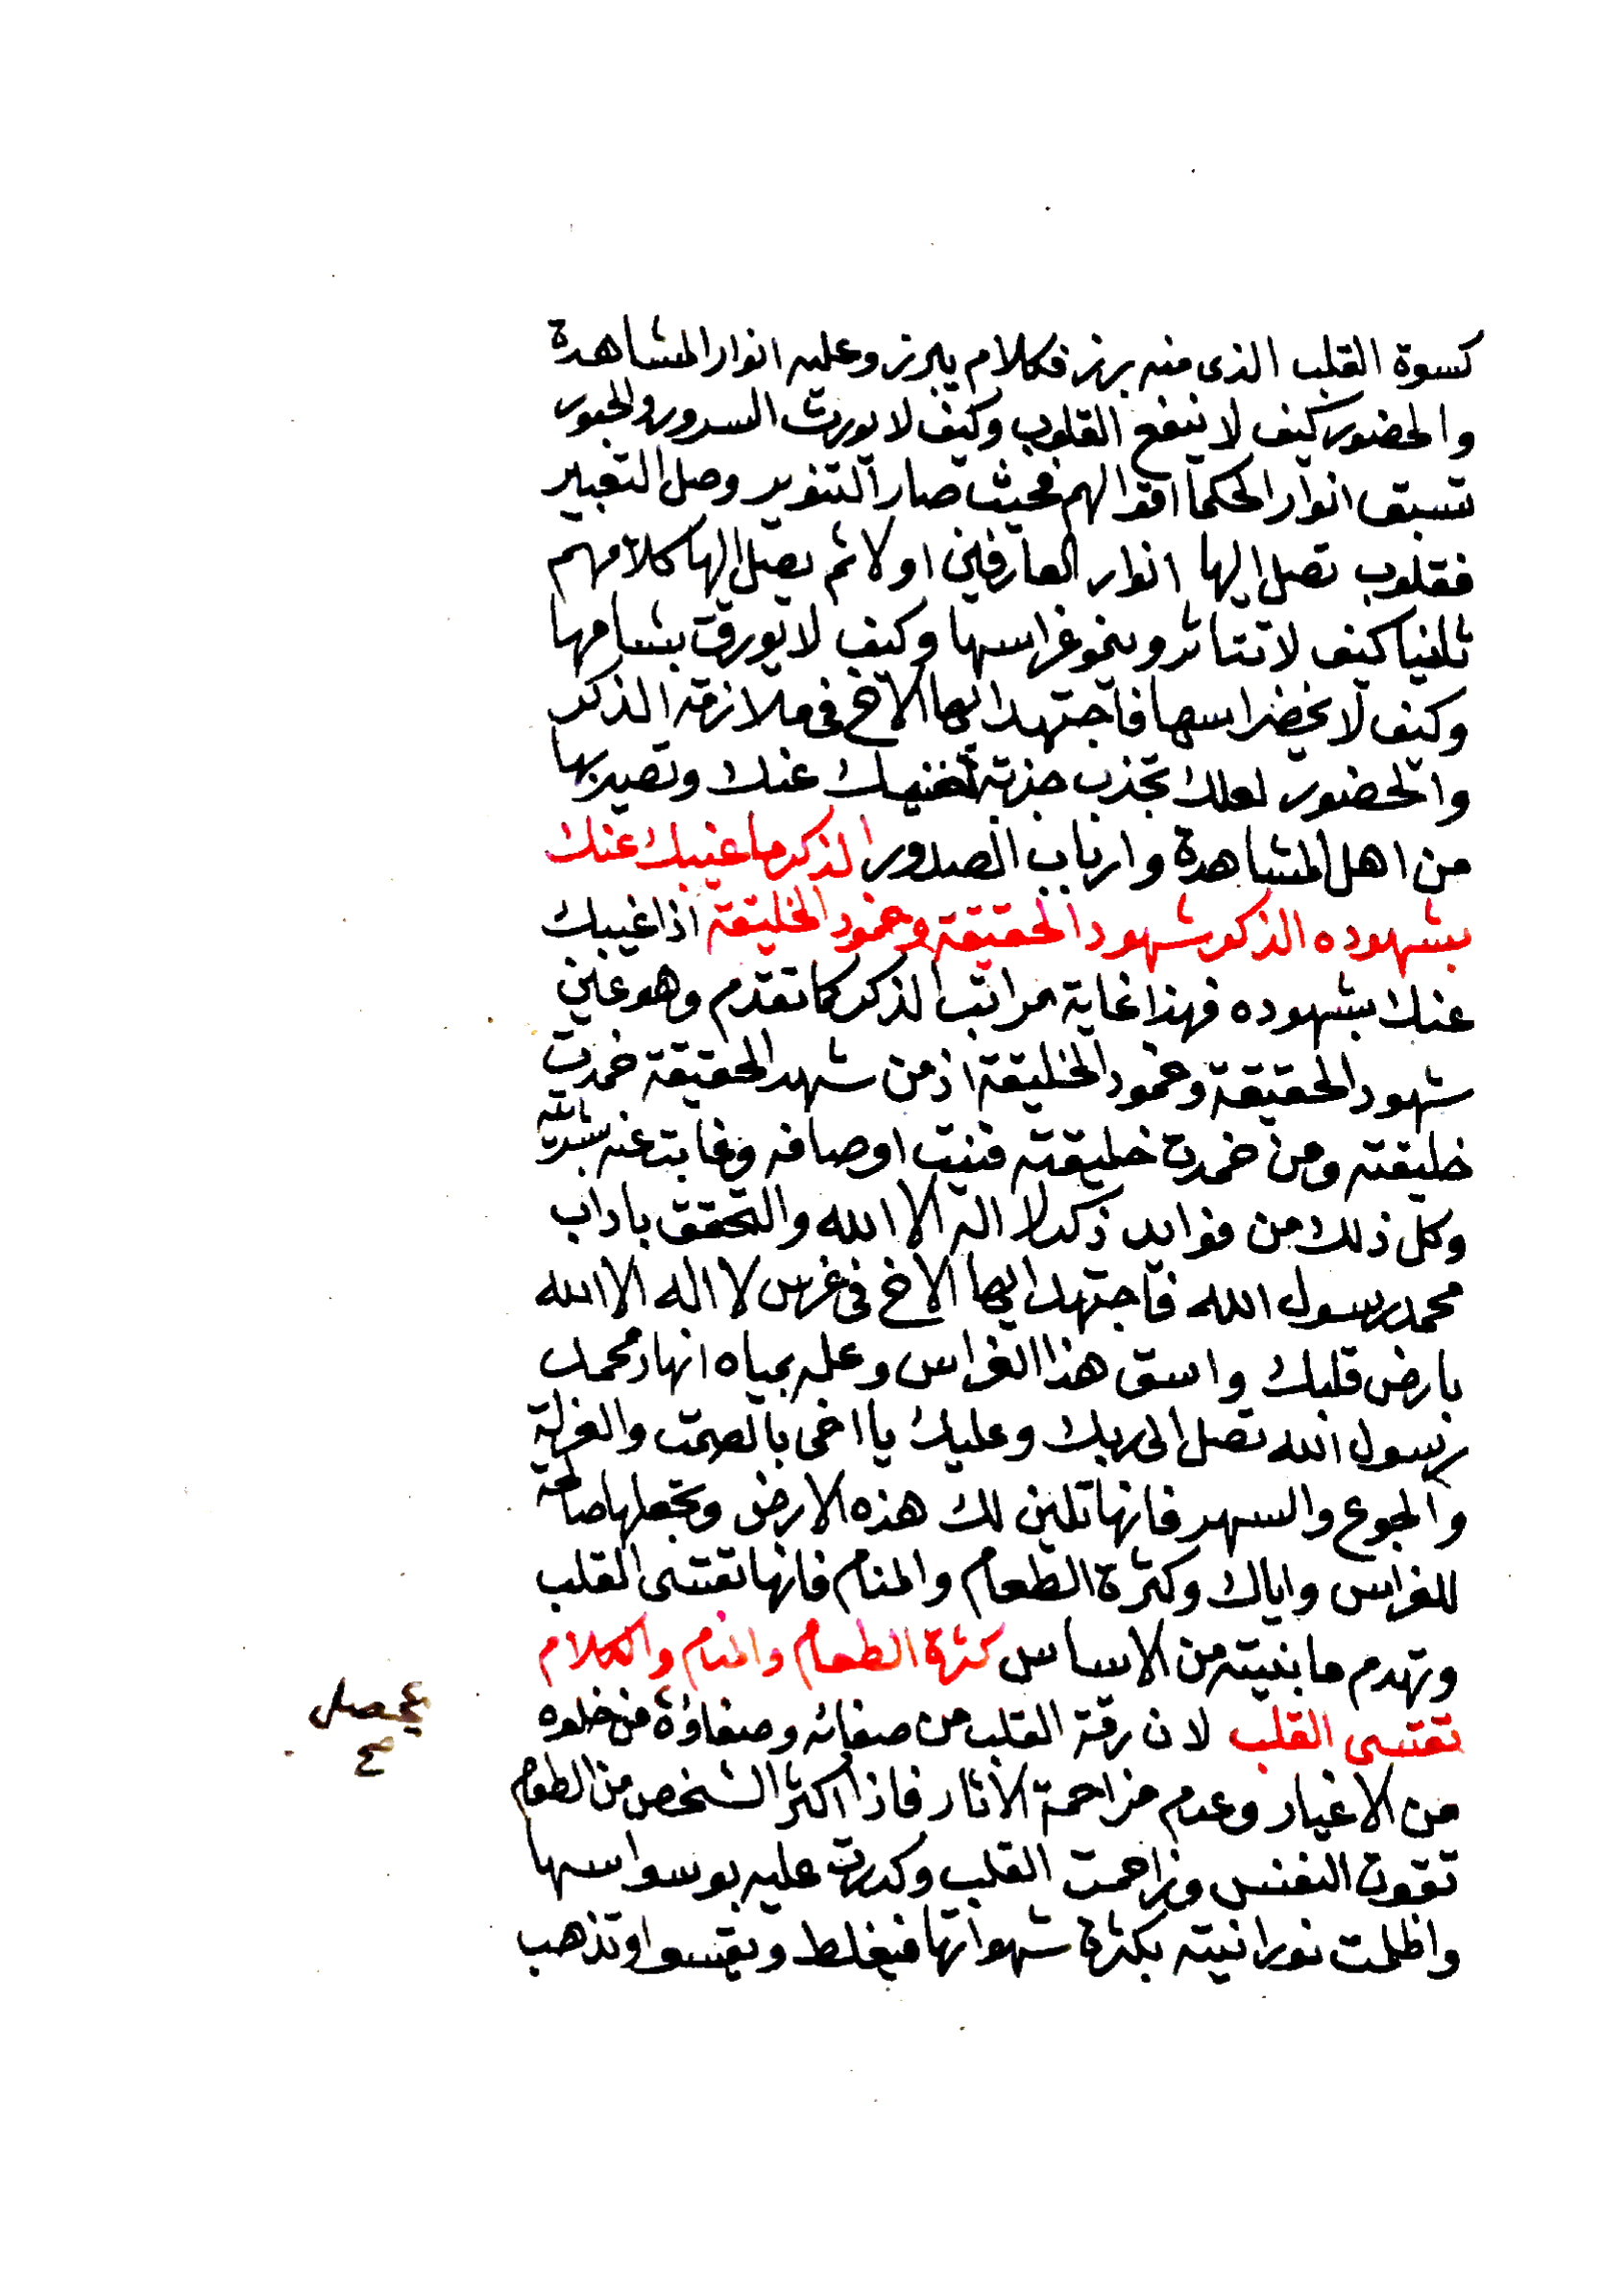 كسوة القلب الذى منه برز فكلام يبرز وعليه انوار المشاهدة
والحضور كيف لا ينفع القلوب وكيف لا يورث السرور والحبور
تسبق انوار الحكما اقوالهم فحيث صار التنوير وصل التعبير
فقلوب تصل اليها انوار العارفين اولا ثم يصل اليها كلامهم
ثانيا كيف لا تتاثر وينمو غراسها وكيف لا يورق بشامها
وكيف لا يخضر اسها فاجتهد ايها الاخ فى ملازمة الذكر
والحضور لعلك تجذب جذبة تغنيك عنك وتصير بها
من اهل المشاهدة وارباب الصدور الذكر ما غيبك عنك
بشهوده الذكر شهود الحقيقة وخمود الخليقة اذا غيبك
عنك بشهوده فهذا غاية مراتب الذكر كما تقدم وهو عين
شهود الحقيقة وخمود الخليقة اذ من شهد الحقيقة خمدت
خليقته ومن خمدت خليقته فنيت اوصافه وغابت عنه بشريته
وكل ذلك من فوايد ذكر لا اله الا الله والتحقق باداب
محمد رسول الله فاجتهد ايها الاخ فى غرس لا اله الا الله
بارض قلبك واسق هذا الغراس وعله بمياه انهار محمد
رسول الله تصل الى ربك وعليك يا اخى بالصمت والعزلة
والجوع والسهر فانها تلين لك هذه الارض وتجعلها صالحة
للغراس واياك وكثرة الطعام والمنام فانها تقسى القلب
وتهدم ما بنيته من الاساس كثرة الطعام والمنام والكلام
تقسى القلب لان رقة القلب من صفائه وصفاؤة من خلوه
يحصل
صح
من الاغيار وعدم مزاحمة الاثار فاذا اكثر الشخص من الطعام
تقوت النفس وزاحمت القلب وكدرت عليه بوسواسها
واظلمت نورانيته بكثرة شهواتها فيغلظ ويقسوا وتذهب